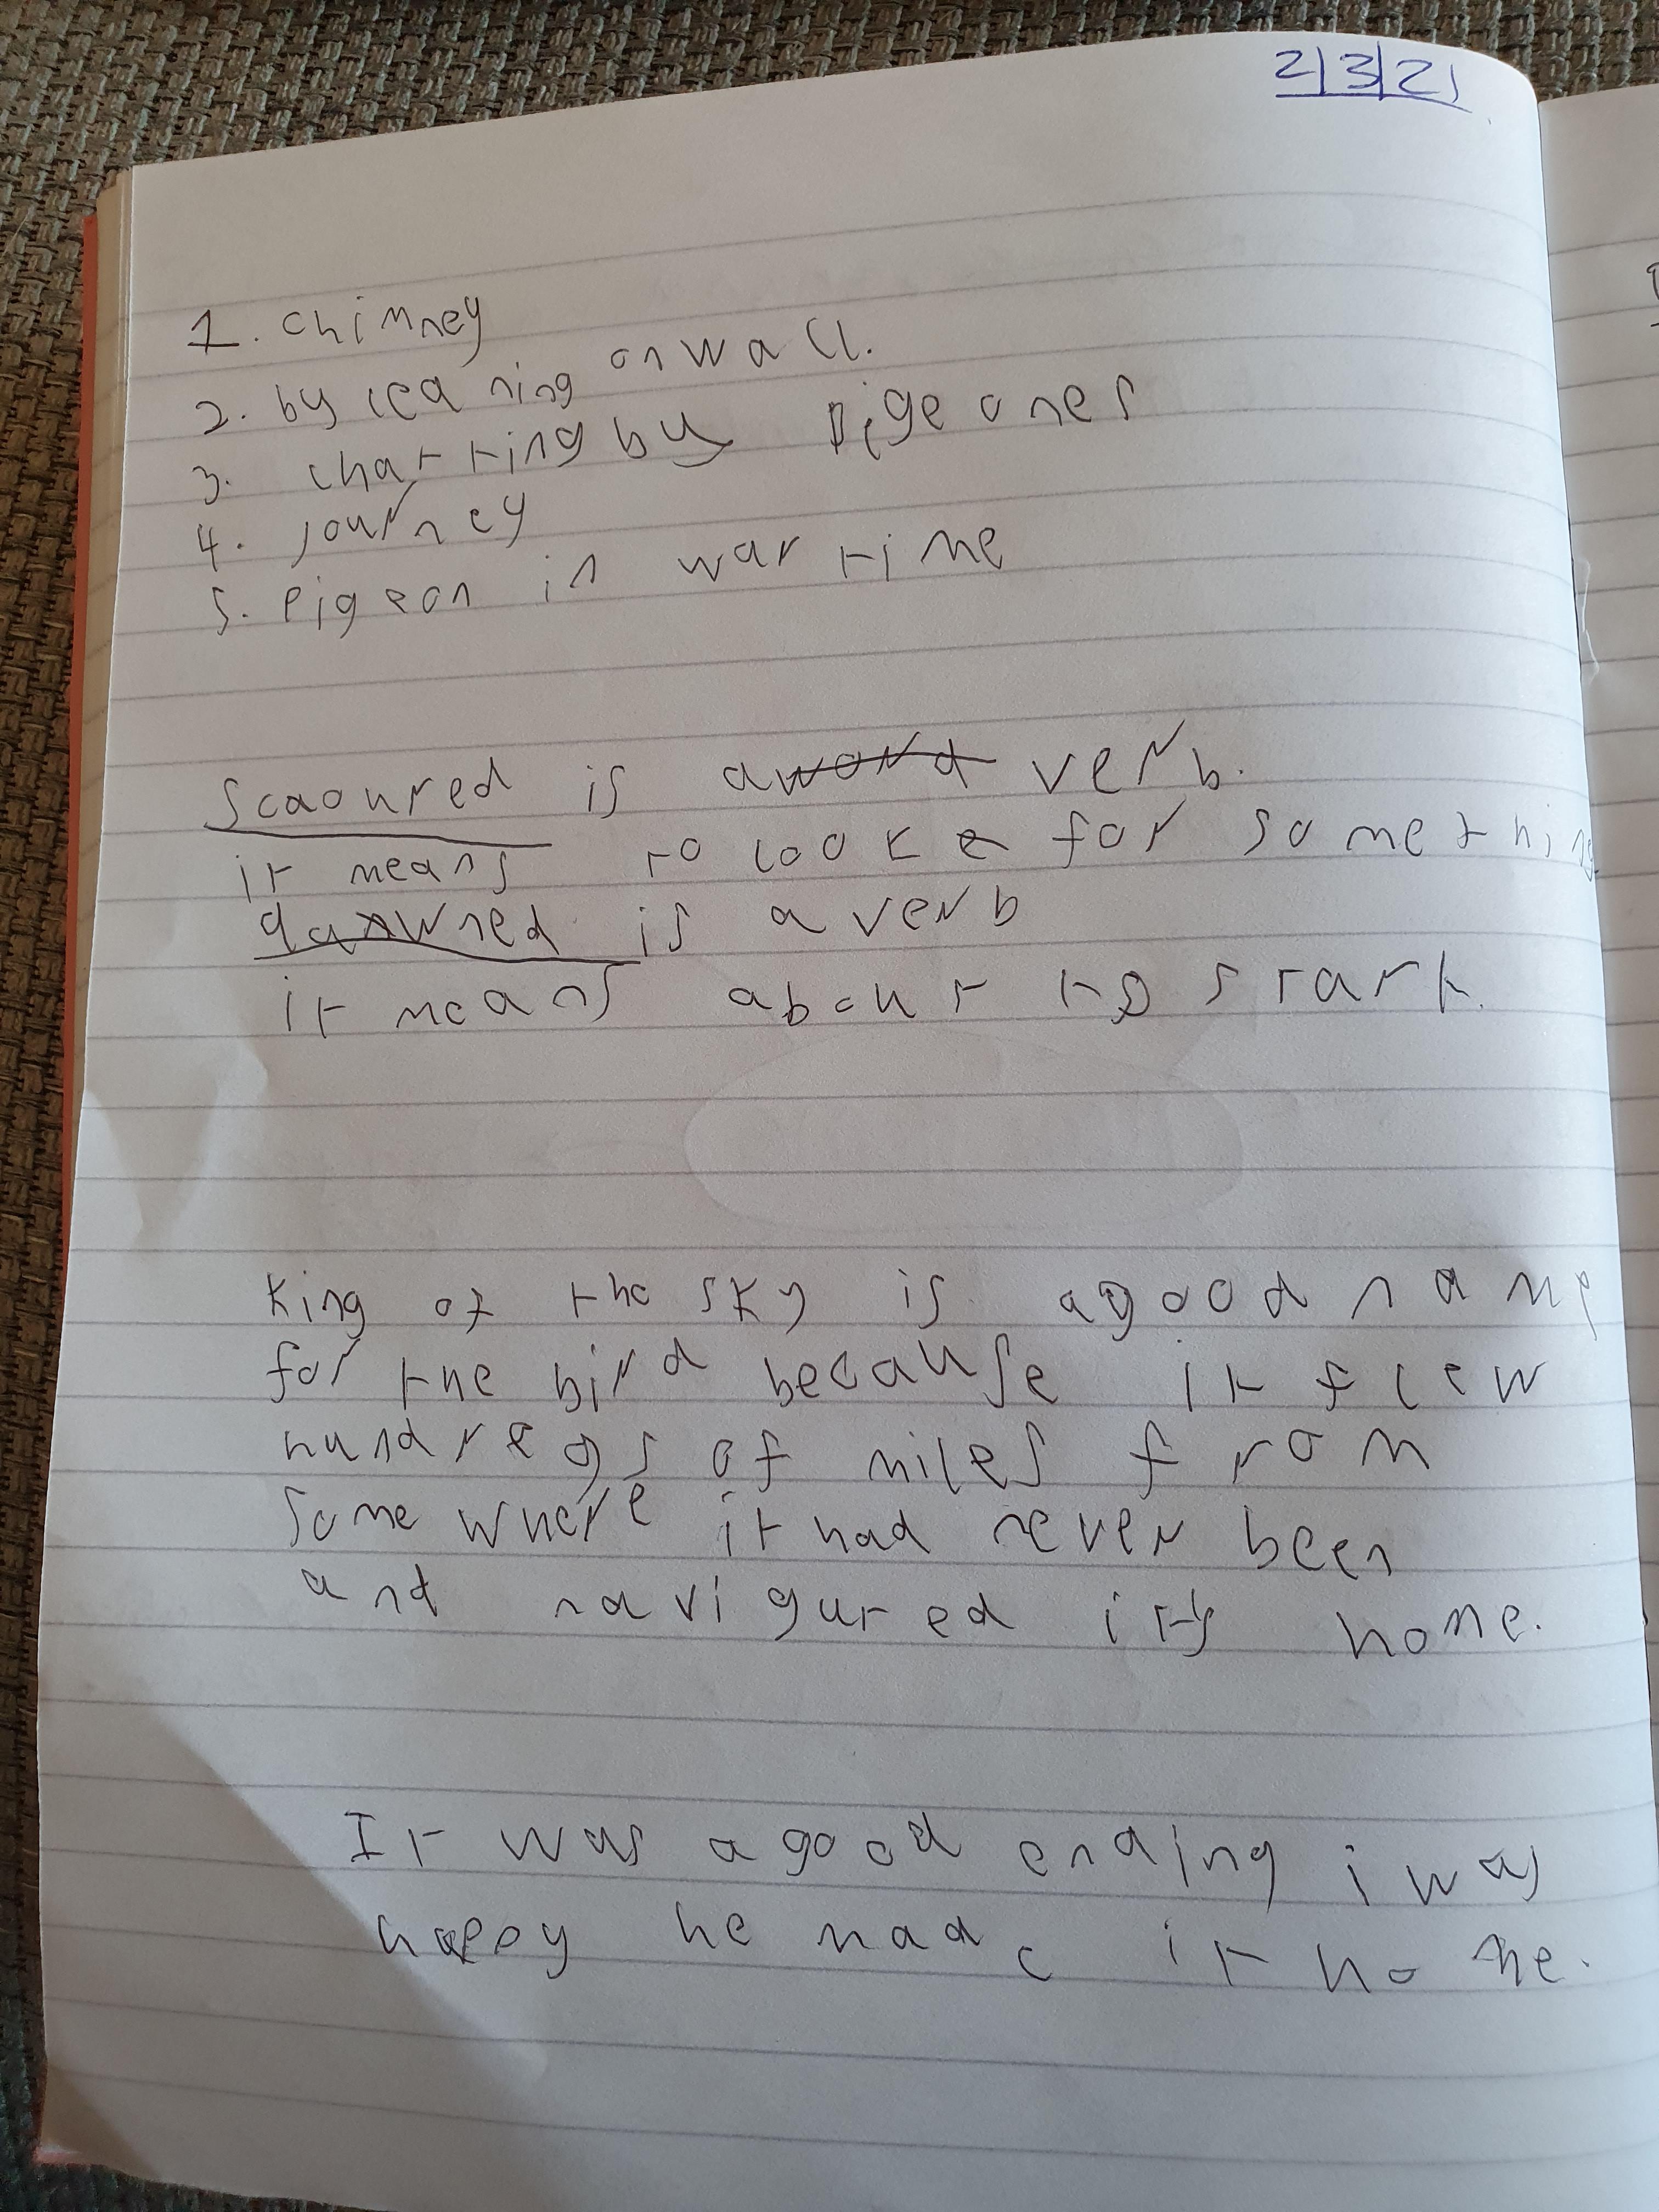 2/3/21
1. chimney
2. by leaning on wall.
3. chatting by pigeones
4. journey
5. pigeon in war time
Scaoured is a word verb.
it means to look for something
dawned is a verb
it means about to start.
King of the sky is a good name
for the bird because it flew
hundreds of miles from
some where it had never been
and navigured it's home.
It was a good ending i was
happy he made it home.